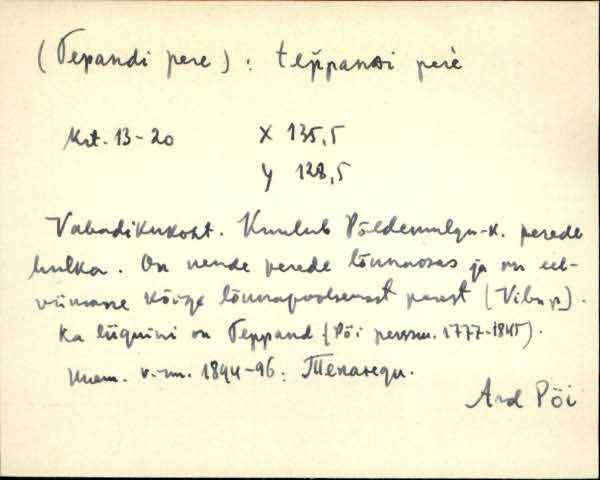 (Tepandi pere): teppanDi perè
Krt. 13-20 X 135,5
Y 128,5
Vabadikukoht. Kuulub Põldemulgu-k. perede
hulka. On nende perede lõunaosas ja on eel-
viimane kõige lõunapoolsemast perest (Vibu p.).
Ka liignimi on Teppand (Põi personn. 1777-1845).
v.-nn. 1894-96: Тепанеди.
And Põi